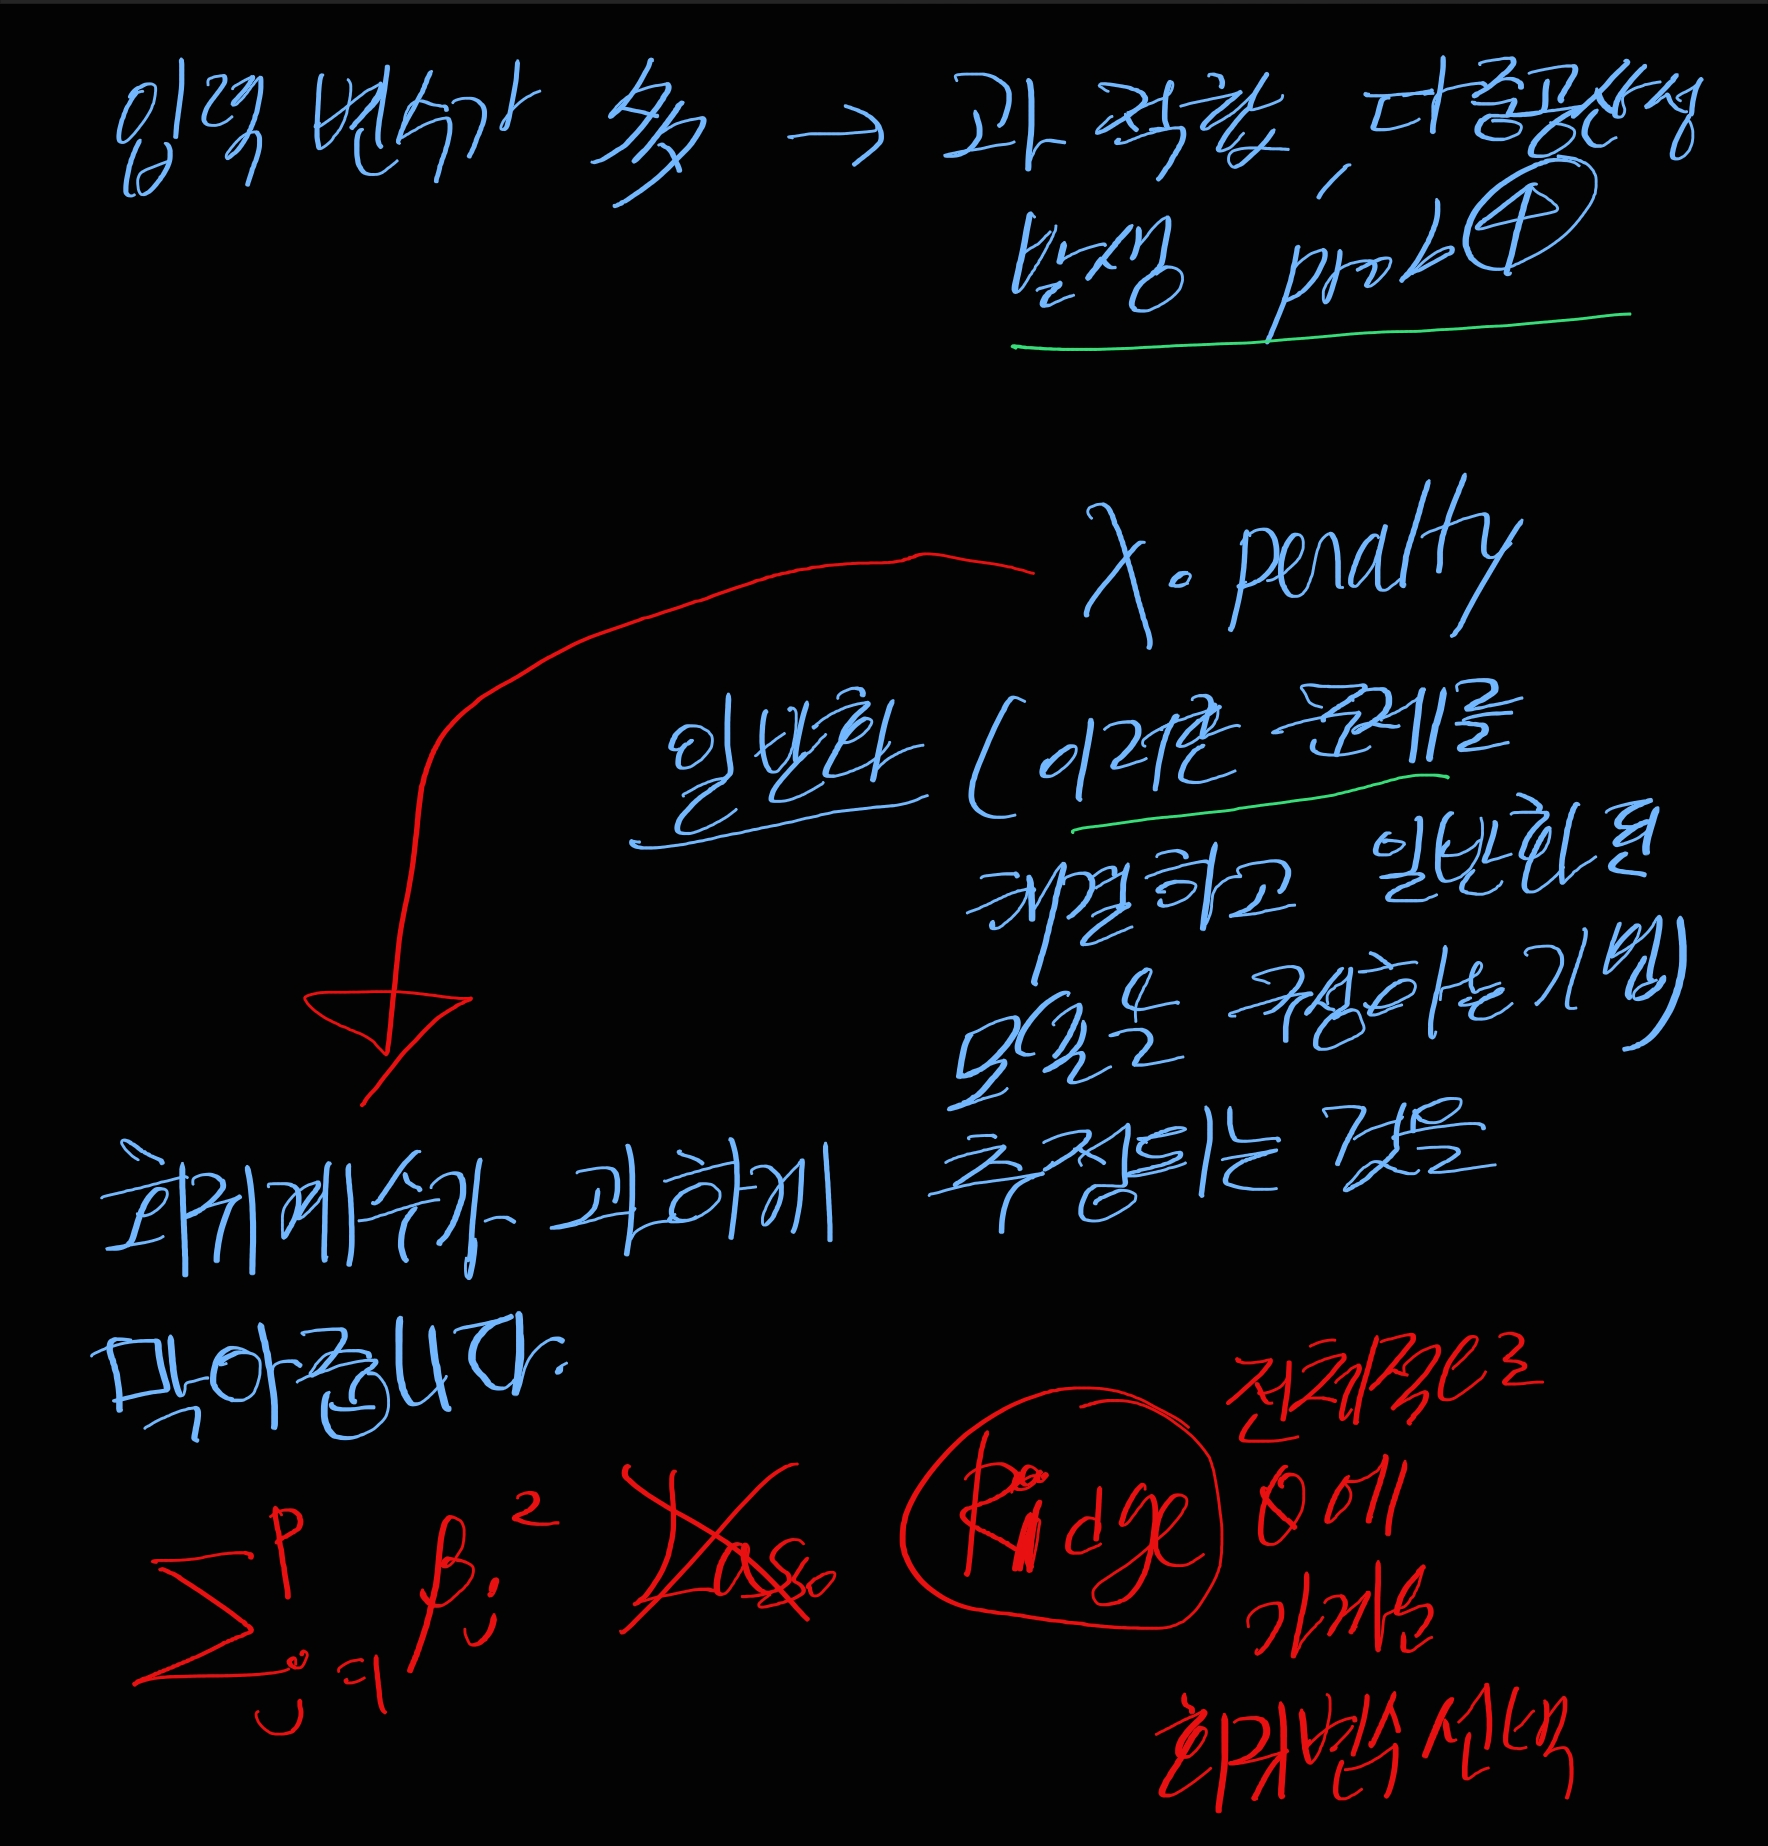 입력 변수가 多 → 과적합, 다중공선성
발생 prob ↑
λ · penalty
일반화 (이러한 문제를
해결하고 일반화된
모델을 구성하는 기법)
회귀계수가 과하게 추정되는 것을
막아줍니다.
전체적으로
0에
가까운
회귀변수 선택
∑ᵖⱼ₌₁ βⱼ² Lasso Ridge